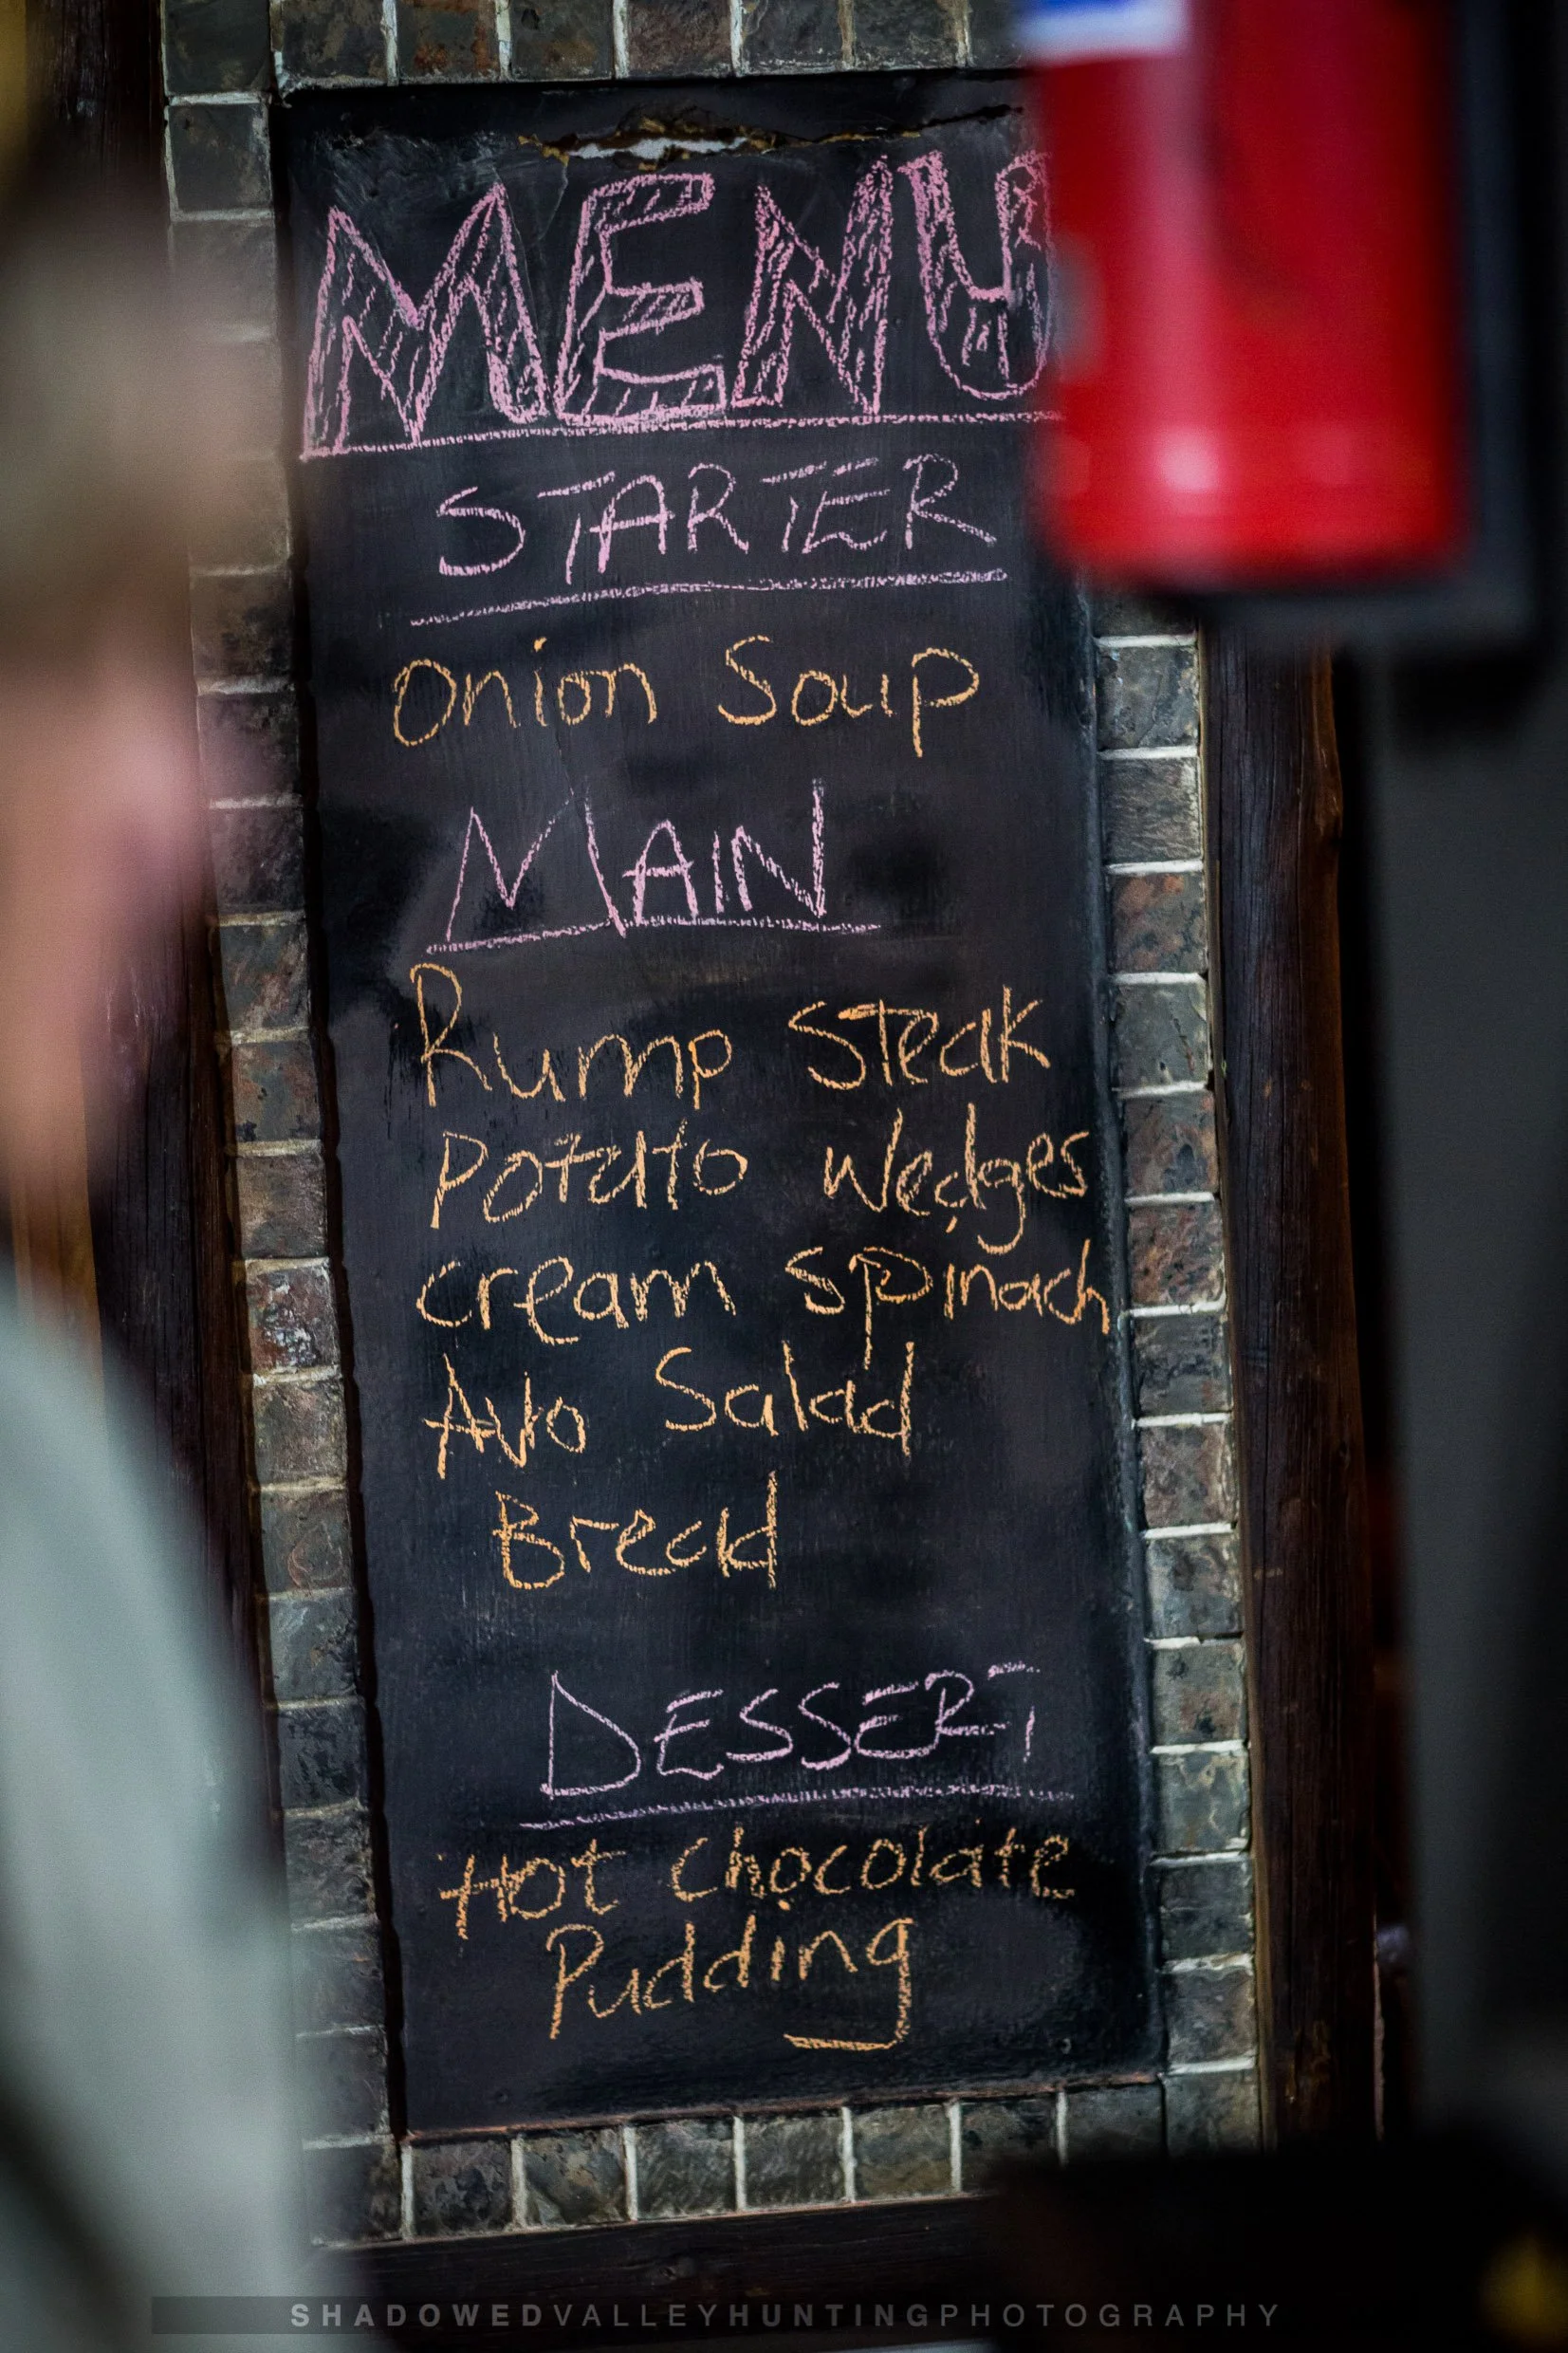 MENU
STARTER
Onion Soup
MAIN
Rump Steak
Potato Wedges
cream spinach
Avo Salad
Bread
DESSERT
Hot Chocolate
Pudding
SHADOWEDVALLEYHUNTINGPHOTOGRAPHY